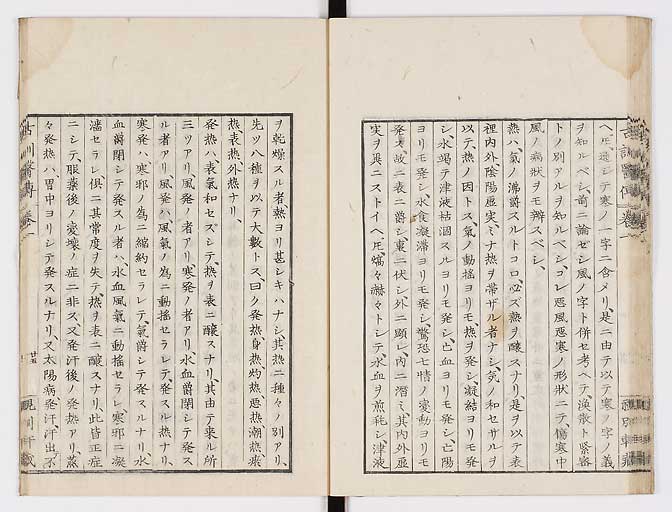 ヘ𪜈、遉ニシテ寒ノ一字ニ含メリ、是ニ由テ以テ寒ノ字ノ義
ヲ知ルベシ、前ニ論セシ風ノ字ト併セ考ヘテ、渙散ト緊密
トノ別アルヲ知ルベシ、コレ悪風悪寒ノ形状ニテ、傷寒中
風ノ病状ヲモ辨スベシ、
熱ハ、氣ノ沸爵スルトコロ、必ズ熱ヲ醸スナリ、是ヲ以テ表
裡内外陰陽虚実ミナ熱ヲ帯ザル者ナシ、気ノ和セサルヲ
以テ、熱ノ因トス、氣ノ動揺ヨリモ、熱ヲ発シ、凝結ヨリモ発
シ、水竭テ津液枯涸スルヨリモ発シ、亡血ヨリモ発シ、亡陽
ヨリモ発シ、水食凝滞ヨリモ発シ、驚恐七情ノ変動ヨリモ
発ス、故ニ表ニ爵シ裏ニ伏シ、外ニ顕レ、内ニ潜ミ、其内外虚
実ヲ異ニストイヘ𪜈、熇々赫々トシテ、水血ヲ煎耗シ、津液
ヲ乾燥スル者、熱ヨリ甚シキハナシ、其熱ニ種々ノ別アリ、
先ツ八種ヲ以テ大數トス、曰ク発熱、身熱、灼熱、悪熱、潮熱、裏
熱、表熱、外熱ナリ、
発熱ハ、表氣和セズシテ、熱ヲ表ニ醸スナリ、其由テ来ル所
三ツアリ、風発ノ者アリ、寒発ノ者アリ、水血爵閉シテ発ス
ル者アリ、風発ハ、風氣ノ為ニ動揺セラレテ、発スル熱ナリ、
寒発ハ、寒邪ノ為ニ縮約セラレテ、氣爵シテ発スルナリ、水
血爵閉シテ発スル者ハ、水血風氣ニ動揺セラレ、寒邪ニ凝
瀋セラレ、倶ニ其常度ヲ失テ、熱ヲ表ニ醸スナリ、此皆正症
ニシテ、服薬後ノ変壊ノ症ニ非ス、又発汗後ノ発熱アリ、蒸
々発熱ハ、胃中ヨリシテ発スルナリ、又太陽病、発汗汗出不
廿五